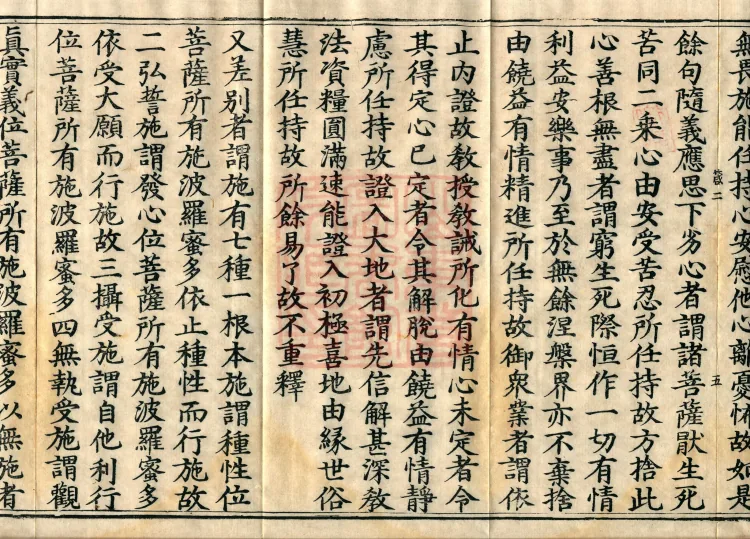 無畏施能任持心安慰他心離憂怖故如是
二
五
餘句隨義應思下劣心者謂諸菩薩厭生死
苦同二乗心由安受苦忍所任持故方捨此
心善根無盡者謂窮生死際恒作一切有情
利益安樂事乃至於無餘涅槃界亦不棄捨
由饒益有情精進所任持故御衆業者謂依
止内證故教授教誡所化有情心未定者令
其得定心已定者令其解脫由饒益有情靜
慮所任持故證入大地者謂先信解甚深教
法資糧圓滿速能證入初極喜地由縁世俗
慧所任持故所餘易了故不重釋
又差別者謂施有七種一根本施謂種性位
菩薩所有施波羅蜜多依止種性而行施故
二弘誓施謂發心位菩薩所有施波羅蜜多
依受大願而行施故三攝受施謂自他利行
位菩薩所有施波羅蜜多四無執受施謂觀
眞實義位菩薩所有施波羅蜜多以無施者